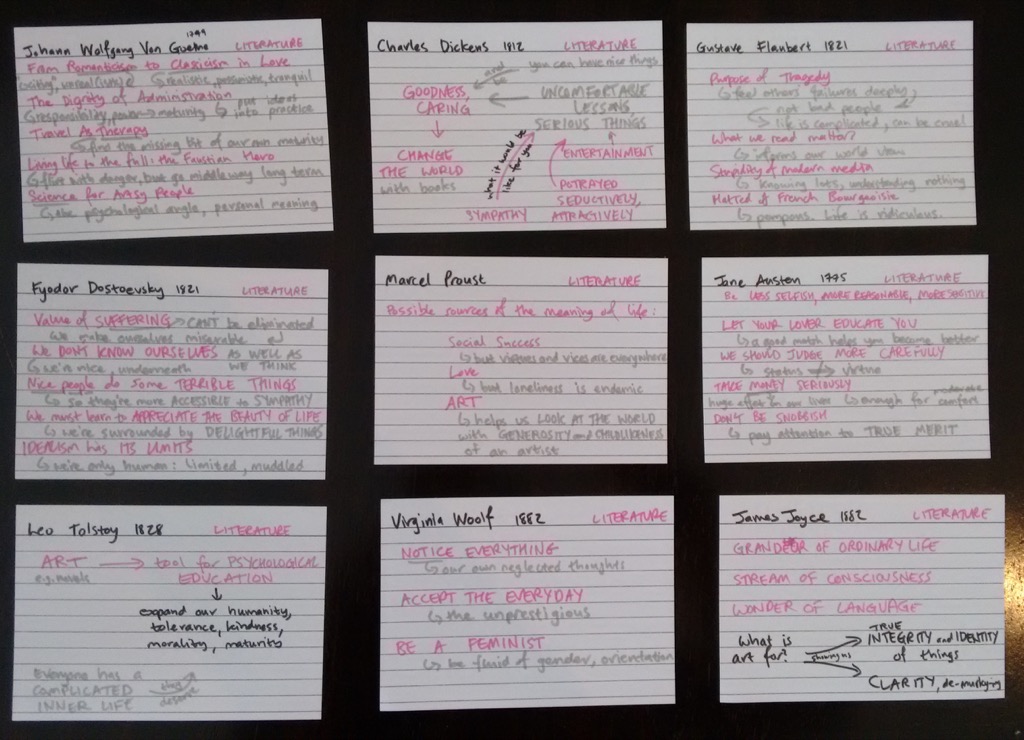 1749
Johann Wolfgang Von Goethe LITERATURE
From Romanticism to Classicism in Love
realistic, pessimistic, tranquil
The Dignity of Administration
responsibility, power → maturity → put ideas into practice
Travel As Therapy
↳ find the missing bit of our own maturity
Living life to the full: the Faustian Hero
↳ flirt with danger, but go middle way long term
Science for Artsy People
↳ the psychological angle, personal meaning
Charles Dickens 1812 LITERATURE
and be you can have nice things
GOODNESS, ← UNCOMFORTABLE
CARING LESSONS,
SERIOUS THINGS
↓
CHANGE
THE WORLD
with books
what it would be
like for you
ENTERTAINMENT
POTRAYED
SEDUCTIVELY,
ATTRACTIVELY
SYMPATHY
Gustave Flaubert 1821 LITERATURE
Purpose of Tragedy
↳ feel others' failures deeply,
not bad people
↳ life is complicated, can be cruel
What we read matter?
↳ informs our world view
Stupidity of modern media
↳ knowing lots, understanding nothing
Hatred of French Bourgeoisie
↳ pompous. Life is ridiculous.
Fyodor Dostoevsky 1821 LITERATURE
Value of SUFFERING → CAN'T be eliminated
We make ourselves miserable
We DON'T KNOW OURSELVES AS WELL AS
↳ we're nice, underneath WE THINK
Nice people do some TERRIBLE THINGS
↳ so they're more ACCESSIBLE to SYMPATHY
We must learn to APPRECIATE THE BEAUTY OF LIFE
↳ we're surrounded by DELIGHTFUL THINGS
IDEALISM has ITS LIMITS
↳ we're only human: limited, muddled
Marcel Proust LITERATURE
Possible sources of the meaning of life:
Social Success
↳ but virtues and vices are everywhere
Love
↳ but loneliness is endemic
ART
↳ helps us LOOK AT THE WORLD
with GENEROSITY and CHILDLIKENESS
of an artist
Jane Austen 1775 LITERATURE
Be LESS SELFISH, MORE REASONABLE, MORE SENSITIVE
LET YOUR LOVER EDUCATE YOU
↳ a good match helps you become better
WE SHOULD JUDGE MORE CAREFULLY
↳ status ↛ virtue
TAKE MONEY SERIOUSLY moderate
huge effect on our lives ↳ enough for comfort
DON'T BE SNOBBISH
↳ pay attention to TRUE MERIT
Leo Tolstoy 1828 LITERATURE
ART → tool for PSYCHOLOGICAL
e.g. novels EDUCATION
↓
expand our humanity,
tolerance, kindness,
morality, maturity
Everyone has a
COMPLICATED they
INNER LIFE deserve
Virginia Woolf 1882 LITERATURE
NOTICE EVERYTHING
↳ our own neglected thoughts
ACCEPT THE EVERYDAY
↳ the unprestigious
BE A FEMINIST
↳ be fluid of gender, orientation
James Joyce 1882 LITERATURE
GRANDEOR OF ORDINARY LIFE
STREAM OF CONSCIOUSNESS
WONDER OF LANGUAGE
TRUE
What is INTEGRITY and IDENTITY
art for? showing us of things
CLARITY,